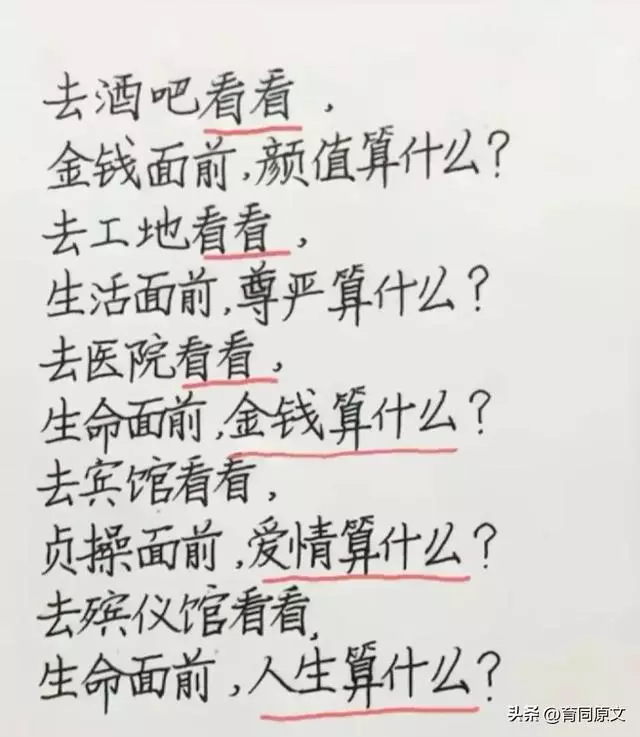 去酒吧看看，
金钱面前，颜值算什么？
去工地看看，
生活面前，尊严算什么？
去医院看看，
生命面前，金钱算什么？
去宾馆看看，
贞操面前，爱情算什么？
去殡仪馆看看，
生命面前，人生算什么？
头条 @育同原文